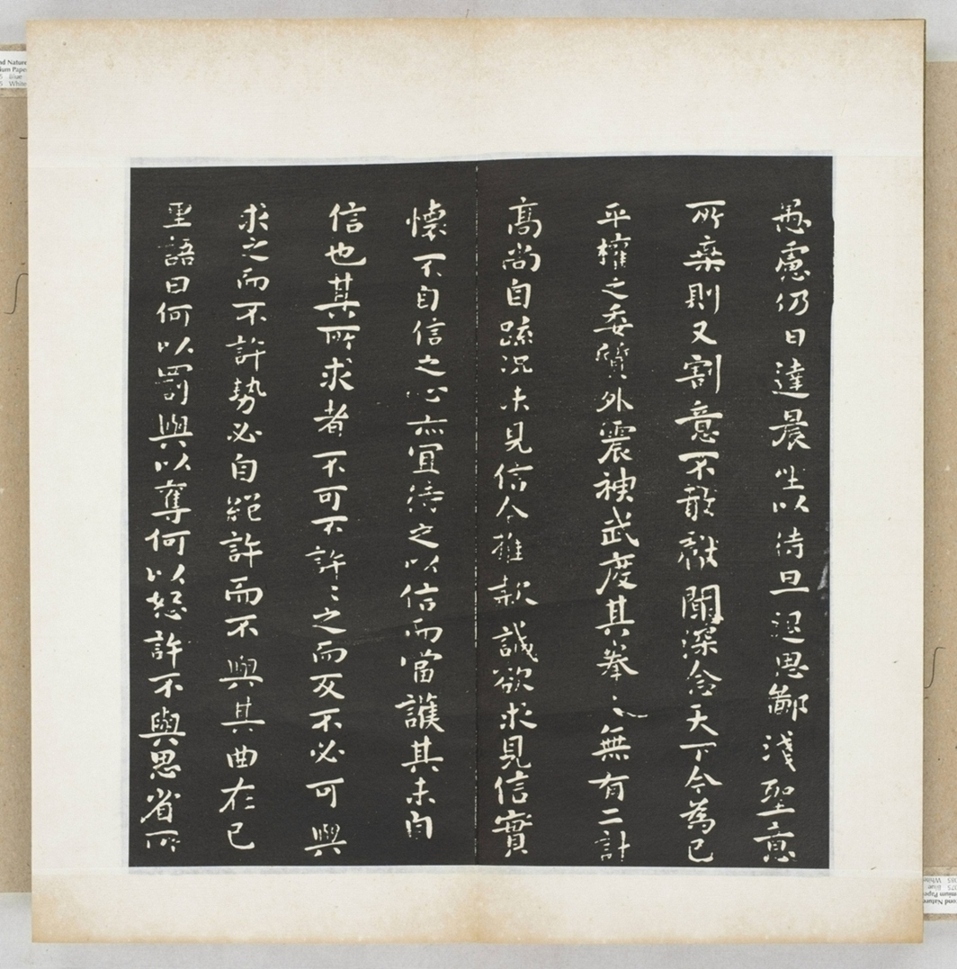 愚慮仍日達晨坐以待旦退思鄙淺聖意
所棄則又割意不敢獻聞深念天下今為已
平權之委質外震神武度其拳〻無有二計
高尚自疏況未見信今推款誠欲求見信實
懷不自信之心亦宜待之以信而當護其未自
信也其所求者不可不許〻之而反不必可與
求之而不許勢必自絕許而不與其曲在己
里語曰何以罰與以奪何以怒許不與思省所